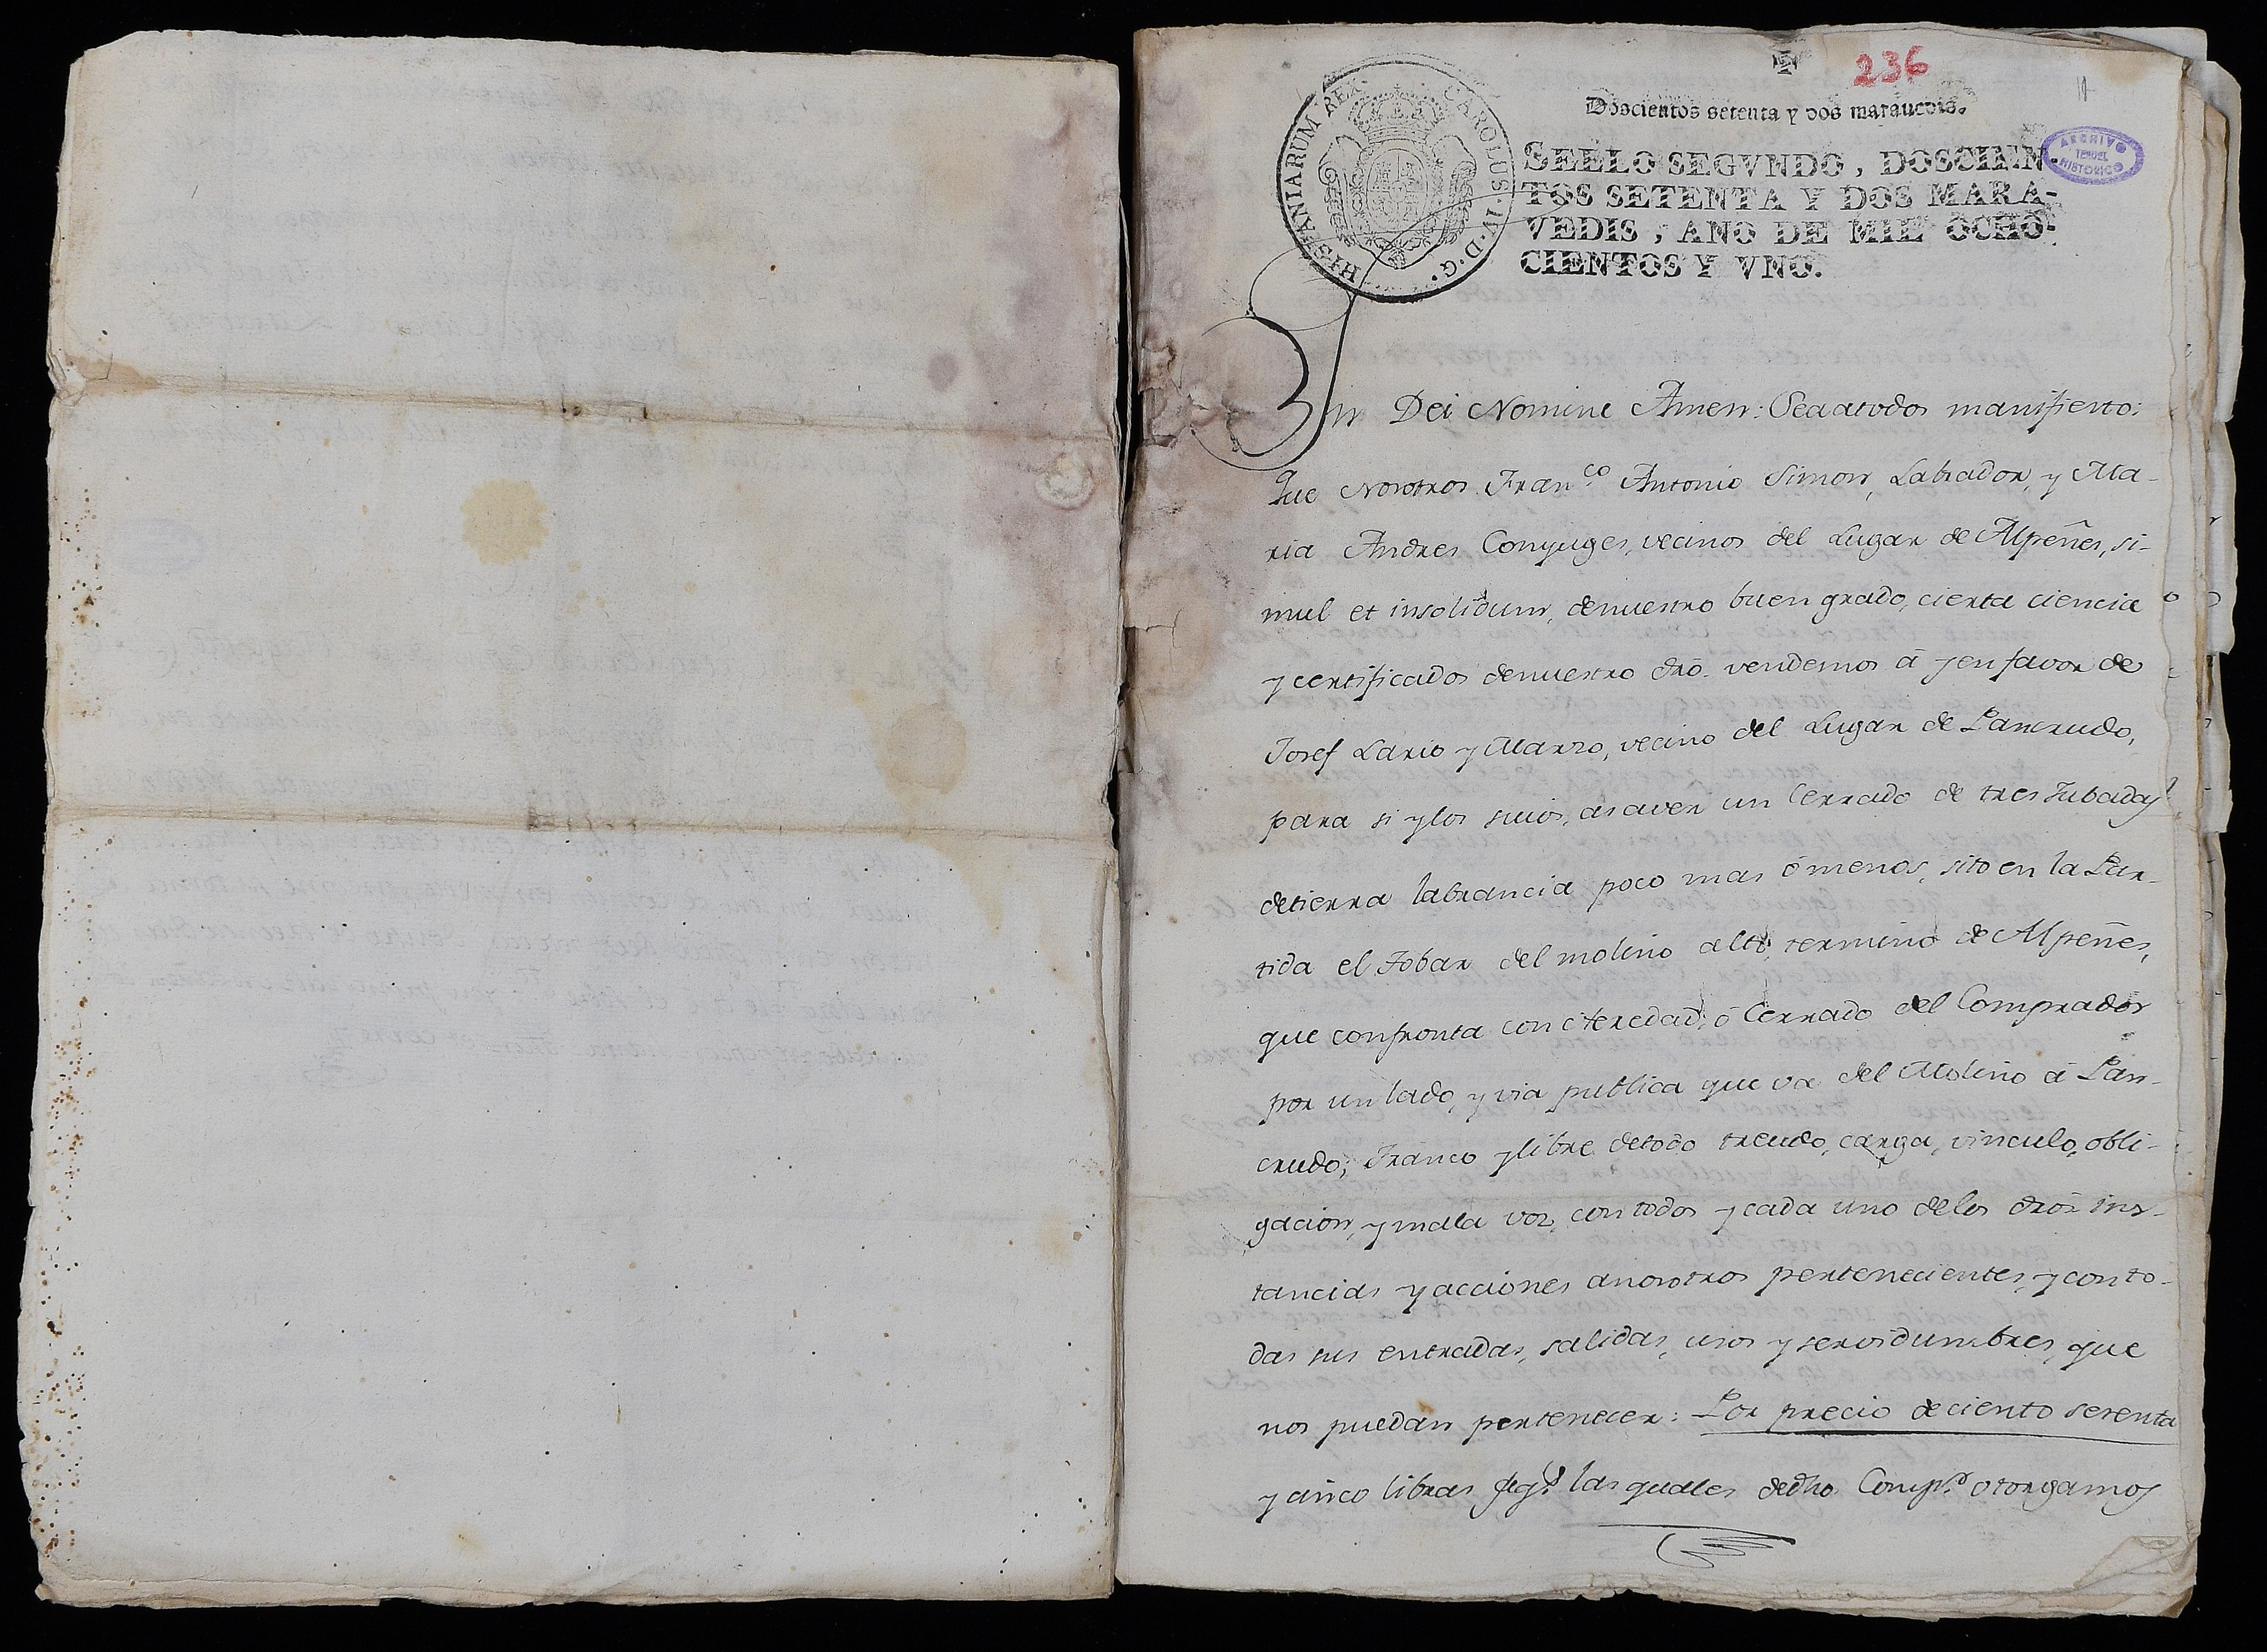 236
Doscientos setenta y dos maravedis.
HISPANIARUM REX CAROLUS·IV·D·G·
SELLO SEGVNDO, DOSCIEN-
TOS SETENTA Y DOS MARA-
VEDIS, AÑO DE MIL OCHO-
CIENTOS Y VNO.
ARCHIVO
TERUEL
HISTORICO
In Dei Nomine Amen: Sea a todos manifiesto:
Que Nosotros Fran.co Antonio Simon, Labrador, y Ma-
ria Andres Conyuges, vecinos del Lugar de Alpeñes, si-
mul et insolidum, de nuestro buen grado, cierta ciencia
y certificados de nuestro dró. vendemos á y en favor de
Josef Lario y Marzo, vecino del Lugar de Pancrudo,
para si y los suios, asaver un Cerrado de tres Jubadas
de tierra labrancia poco mas ó menos, sito en la Par-
tida el Tobar del molino alto, termino de Alpeñes,
que confronta con Heredad, ó Cerrado del Comprador
por un lado, y via publica que va del Molino á Pan-
crudo; Franco y libre de todo treudo, carga, vinculo, obli-
gacion, y mala voz, con todos y cada uno de los drós ins-
tancias y acciones a nosotros pertenecientes, y con to-
das sus entradas, salidas, usos y servidumbres, que
nos puedan pertenecer: Por precio de ciento setenta
y cinco libras jaq.s las quales de dho Comp.r otorgamos